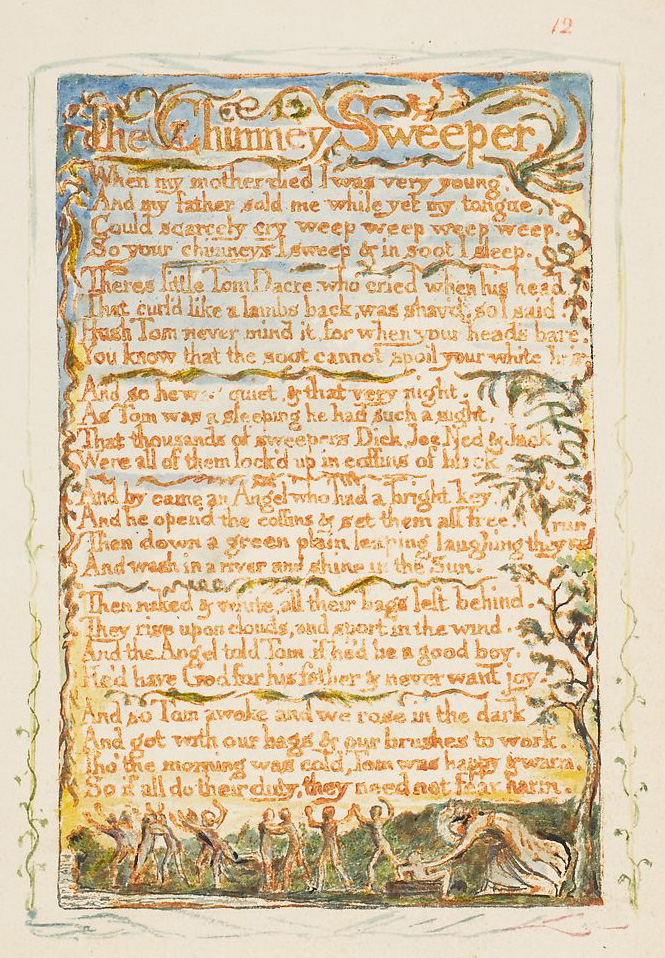 12
The Chimney Sweeper
When my mother died I was very young,
And my father sold me while yet my tongue,
Could scarcely cry weep weep weep weep.
So your chimneys I sweep & in soot I sleep.
Theres little Tom Dacre, who cried when his head
That curl'd like a lambs back, was shav'd, so I said
Hush Tom never mind it, for when your heads bare,
You know that the soot cannot spoil your white
And so he was quiet, & that very night,
As Tom was a sleeping he had such a sight,
That thousands of sweepers Dick, Joe, Ned & Jack
Were all of them lock'd up in coffins of black
And by came an Angel who had a bright key
And he open'd the coffins & set them all free.
run
Then down a green plain leaping laughing they
And wash in a river and shine in the Sun.
Then naked & white, all their bags left behind.
They rise upon clouds, and sport in the wind.
And the Angel told Tom if he'd be a good boy.
He'd have God for his father & never want joy.
And so Tom awoke and we rose in the dark
And got with our bags & our brushes to work.
Tho' the morning was cold, Tom was happy & warm.
So if all do their duty, they need not fear harm.